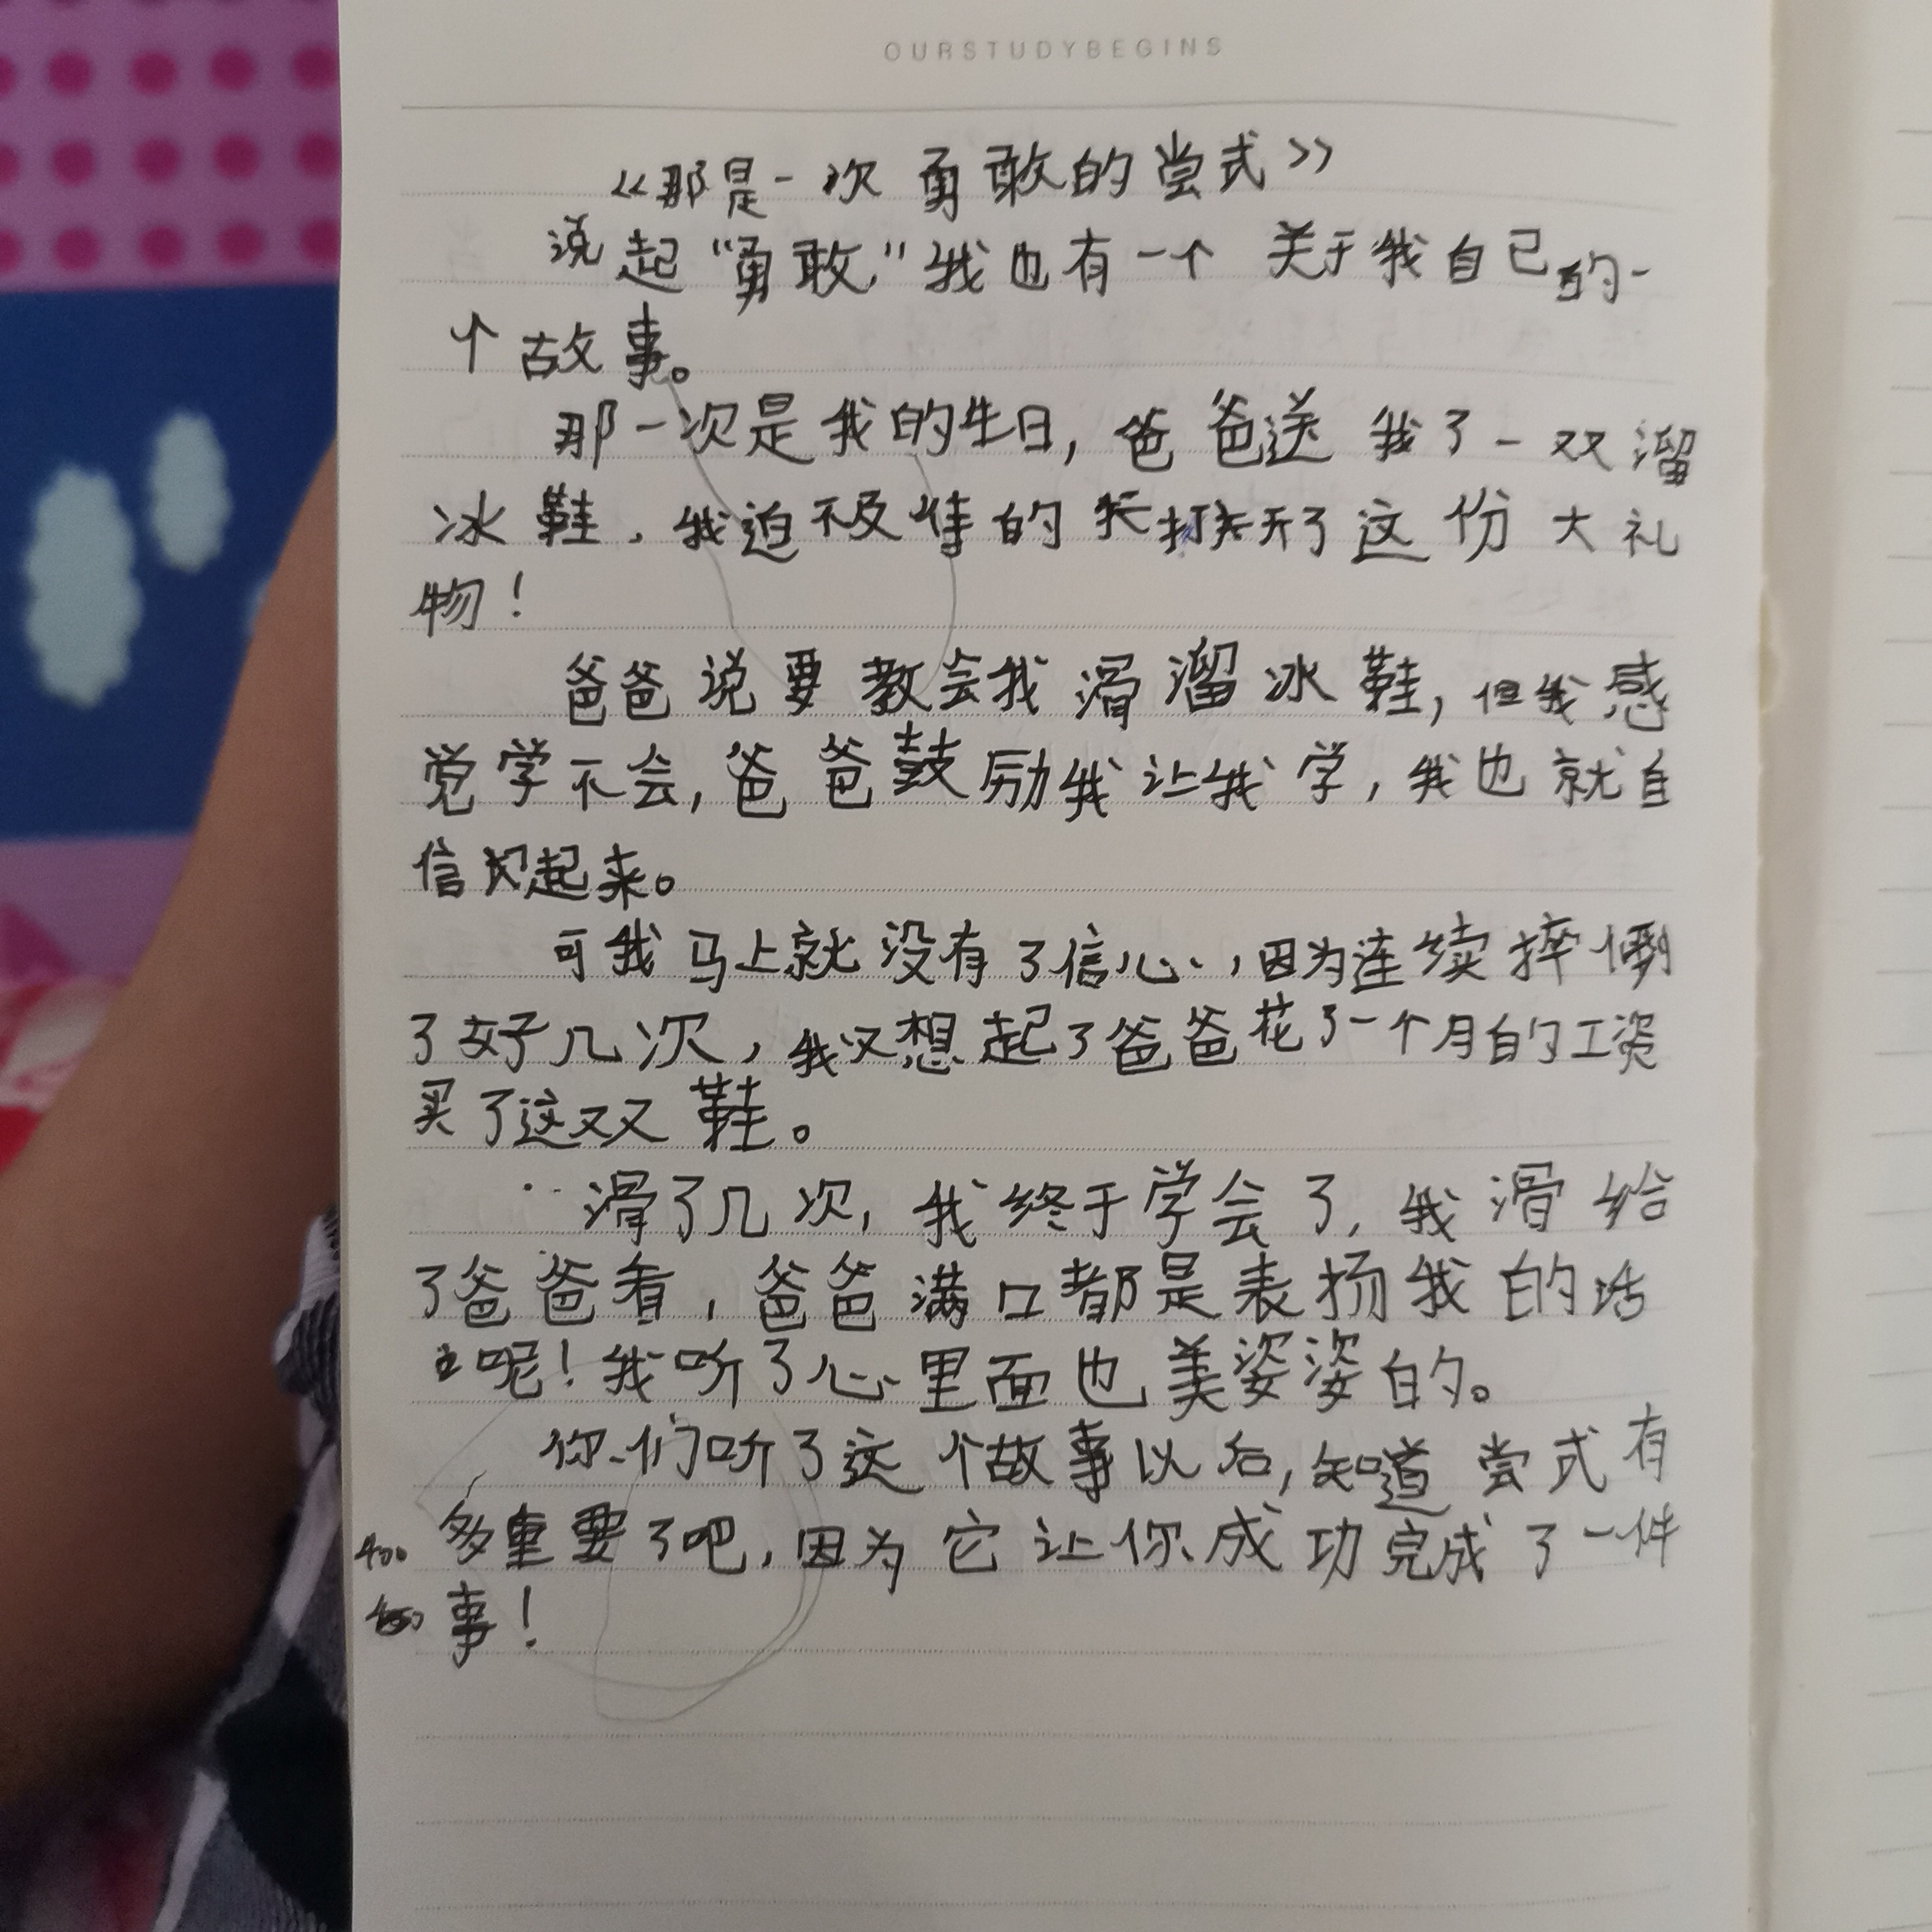 OURSTUDYBEGINS
《那是一次勇敢的尝式》
说起“勇敢,”我也有一个关于我自己的一
个故事。
那一次是我的生日,爸爸送我了一双溜
冰鞋,我迫不及待的打开了这份大礼
物!
爸爸说要教会我滑溜冰鞋,但我感
觉学不会,爸爸鼓励我让我学,我也就自
信起来。
可我马上就没有了信心,因为连续摔倒
了好几次,我又想起了爸爸花了一个月的工资
买了这双鞋。
滑了几次,我终于学会了,我滑给
了爸爸看,爸爸满口都是表扬我的话
呢!我听了心里面也美姿姿的。
你们听了这个故事以后,知道尝式有
多重要了吧,因为它让你成功完成了一件
400
事!